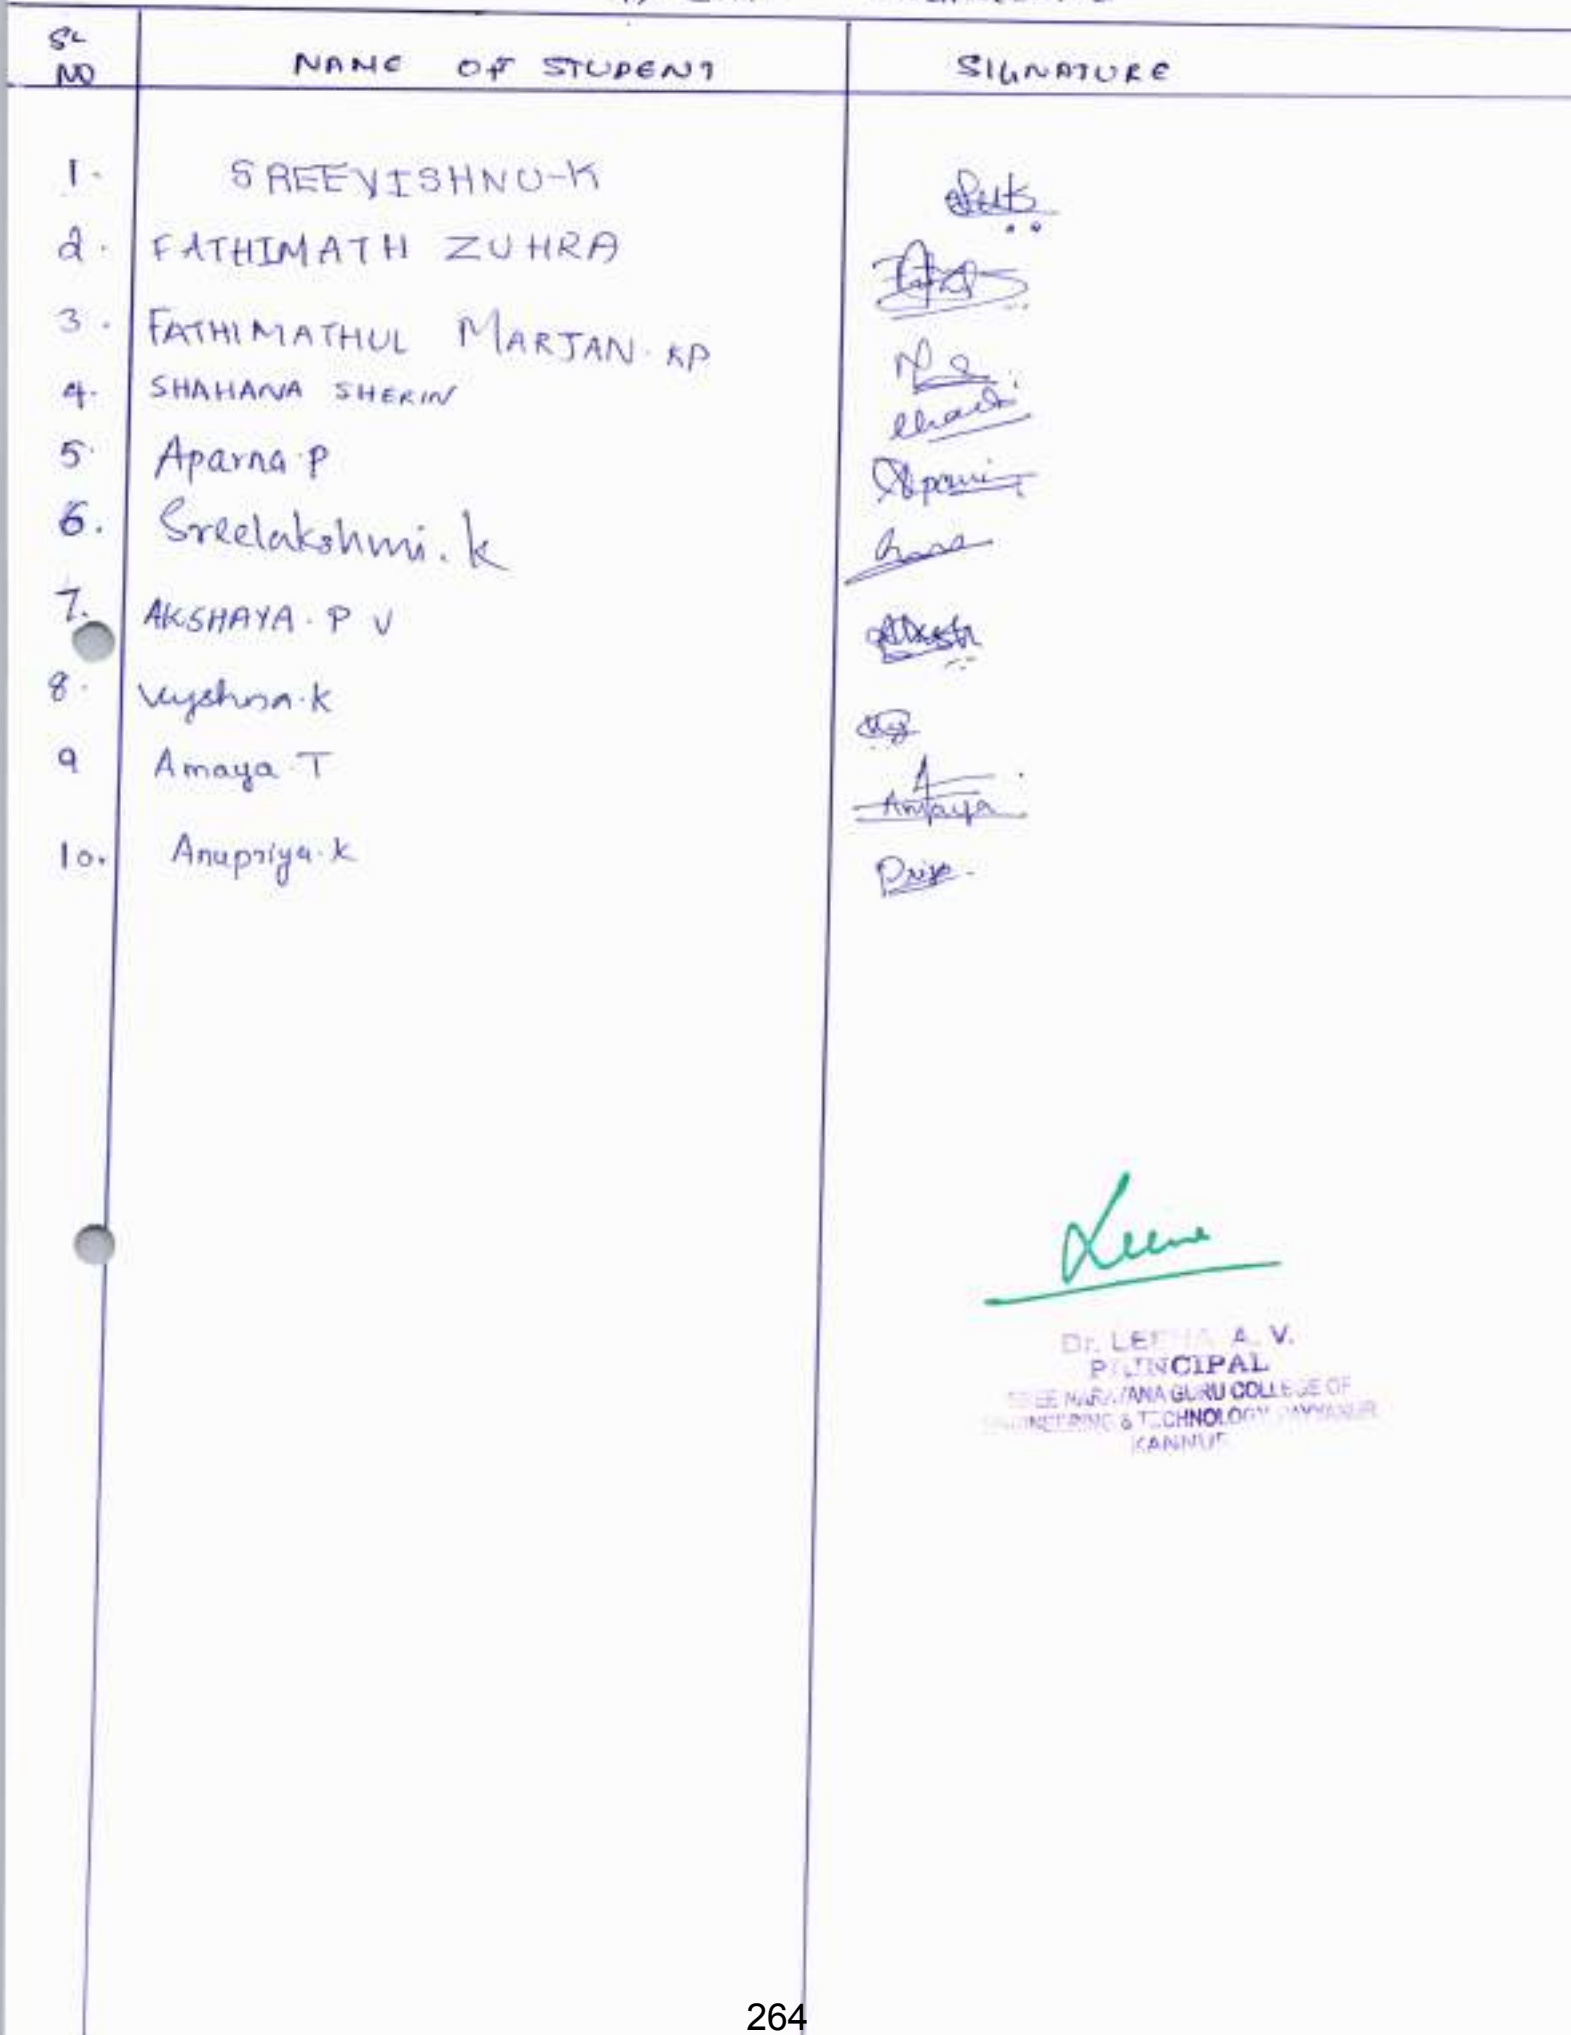 SL NO NAME OF STUDENT SIGNATURE
1. SREEVISHNU-K
2. FATHIMATH ZUHRA
3. FATHIMATHUL MARJAN. KP
4. SHAHANA SHERIN
5. Aparna.P
6. Sreelakshmi.k
7. AKSHAYA. P V
8. Vyshna.k
9 Amaya.T Amaya
10. Anupriya.k Priya.
Leena
Dr. LEENA A. V.
PRINCIPAL
SREE NARAYANA GURU COLLEGE OF
ENGINEERING & TECHNOLOGY PAYYANUR
KANNUR
264